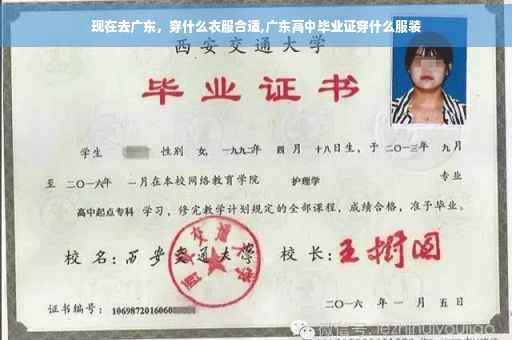 现在去广东，穿什么衣服合适,广东高中毕业证穿什么服装
西安交通大学
毕业证书
学生 性别 女, 一九九二年 四 月 十八日生，于 二〇一三年 九月
至 二〇一六年 一月在本校网络教育学院 护理学 专业
高中起点专科 学习，修完教学计划规定的全部课程，成绩合格，准予毕业。
校 名：西安交通大学 校 长：王树国
西安交通大学
证书编号：1069872016060
二〇一六 年 一 月 五 日
微信号: jiezhihuiyoujiao